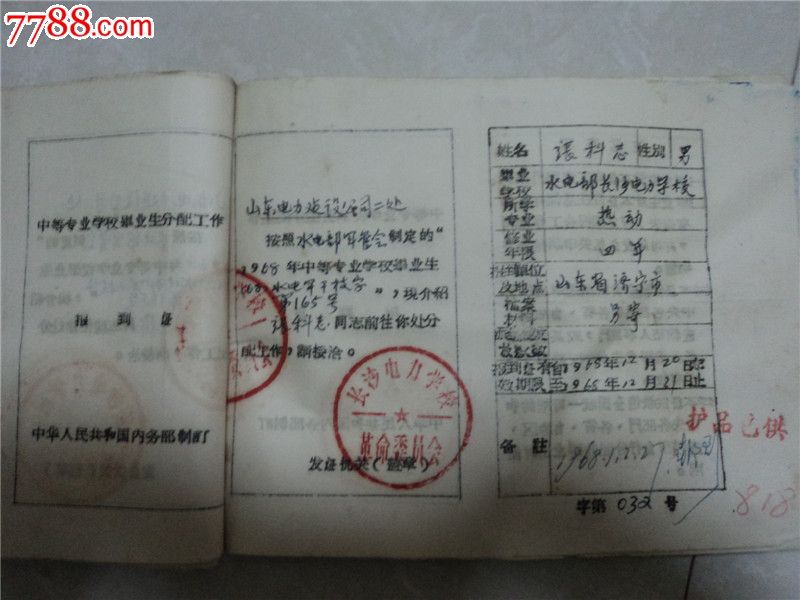 7788.com
中国收藏热线
中等专业学校毕业生分配工作
报到证
中华人民共和国内务部制订
山东电力建设公司二处
按照水电部军管会制定的“
1968年中等专业学校毕业生
水电军字
第165号
”，现介绍
张科志 同志前往你处分
配工作，请接洽。
长沙电力学校
革命委员会
发证机关（盖章）
姓名 张科志 性别 男
毕业学校 水电部长沙电力学校
所学专业 热动
修业年限 四年
报到单位及地点 山东省济宁市
档案材料 另寄
报到证有效期限 自1968年12月20日起
至1968年12月31日止
备注 1968.12.27
护品已供
字第 032 号
818